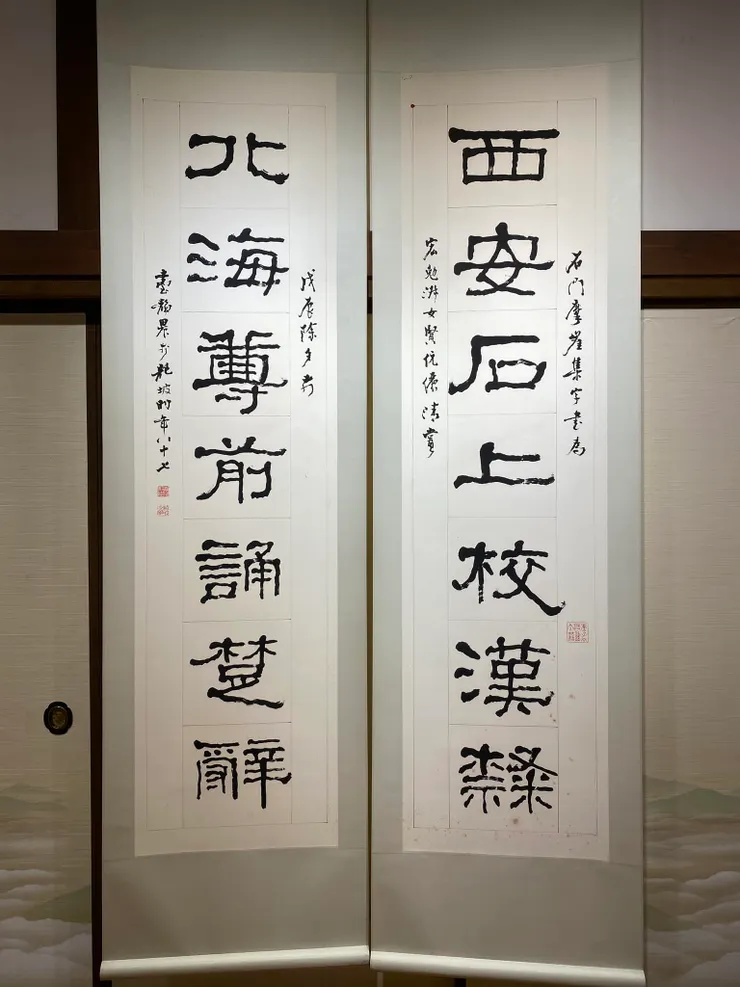 石門摩崖集字書為
西安石上校漢隸
宏勉淑女賢伉儷清賞
戊辰除夕前
北海尊前誦楚辭
臺靜農於龍坡時年八十七